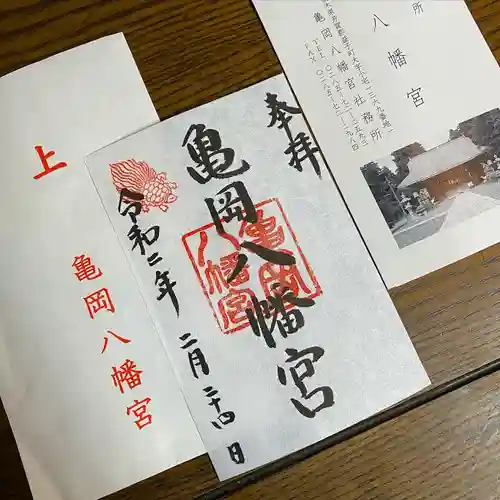 上
亀岡八幡宮
奉拝
亀岡八幡宮
亀岡八幡宮
令和二年
二月二十四日
所
八幡宮
亀岡八幡宮社務所